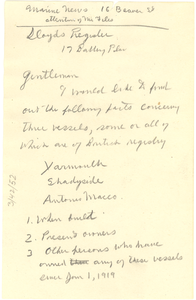 Marine News 16 Beaver St
attention of Mr Files
Lloyds Register
17 Battery Place
Gentlemen
I would like to find
out the following facts concerning
three vessels, some or all of
which are of British registry
Yarmouth
Shadyside
Antonio Maceo
1. When built
2. Present owners
3 Other persons who have
owned any of these vessels
since Jan 1, 1919
3/24/52